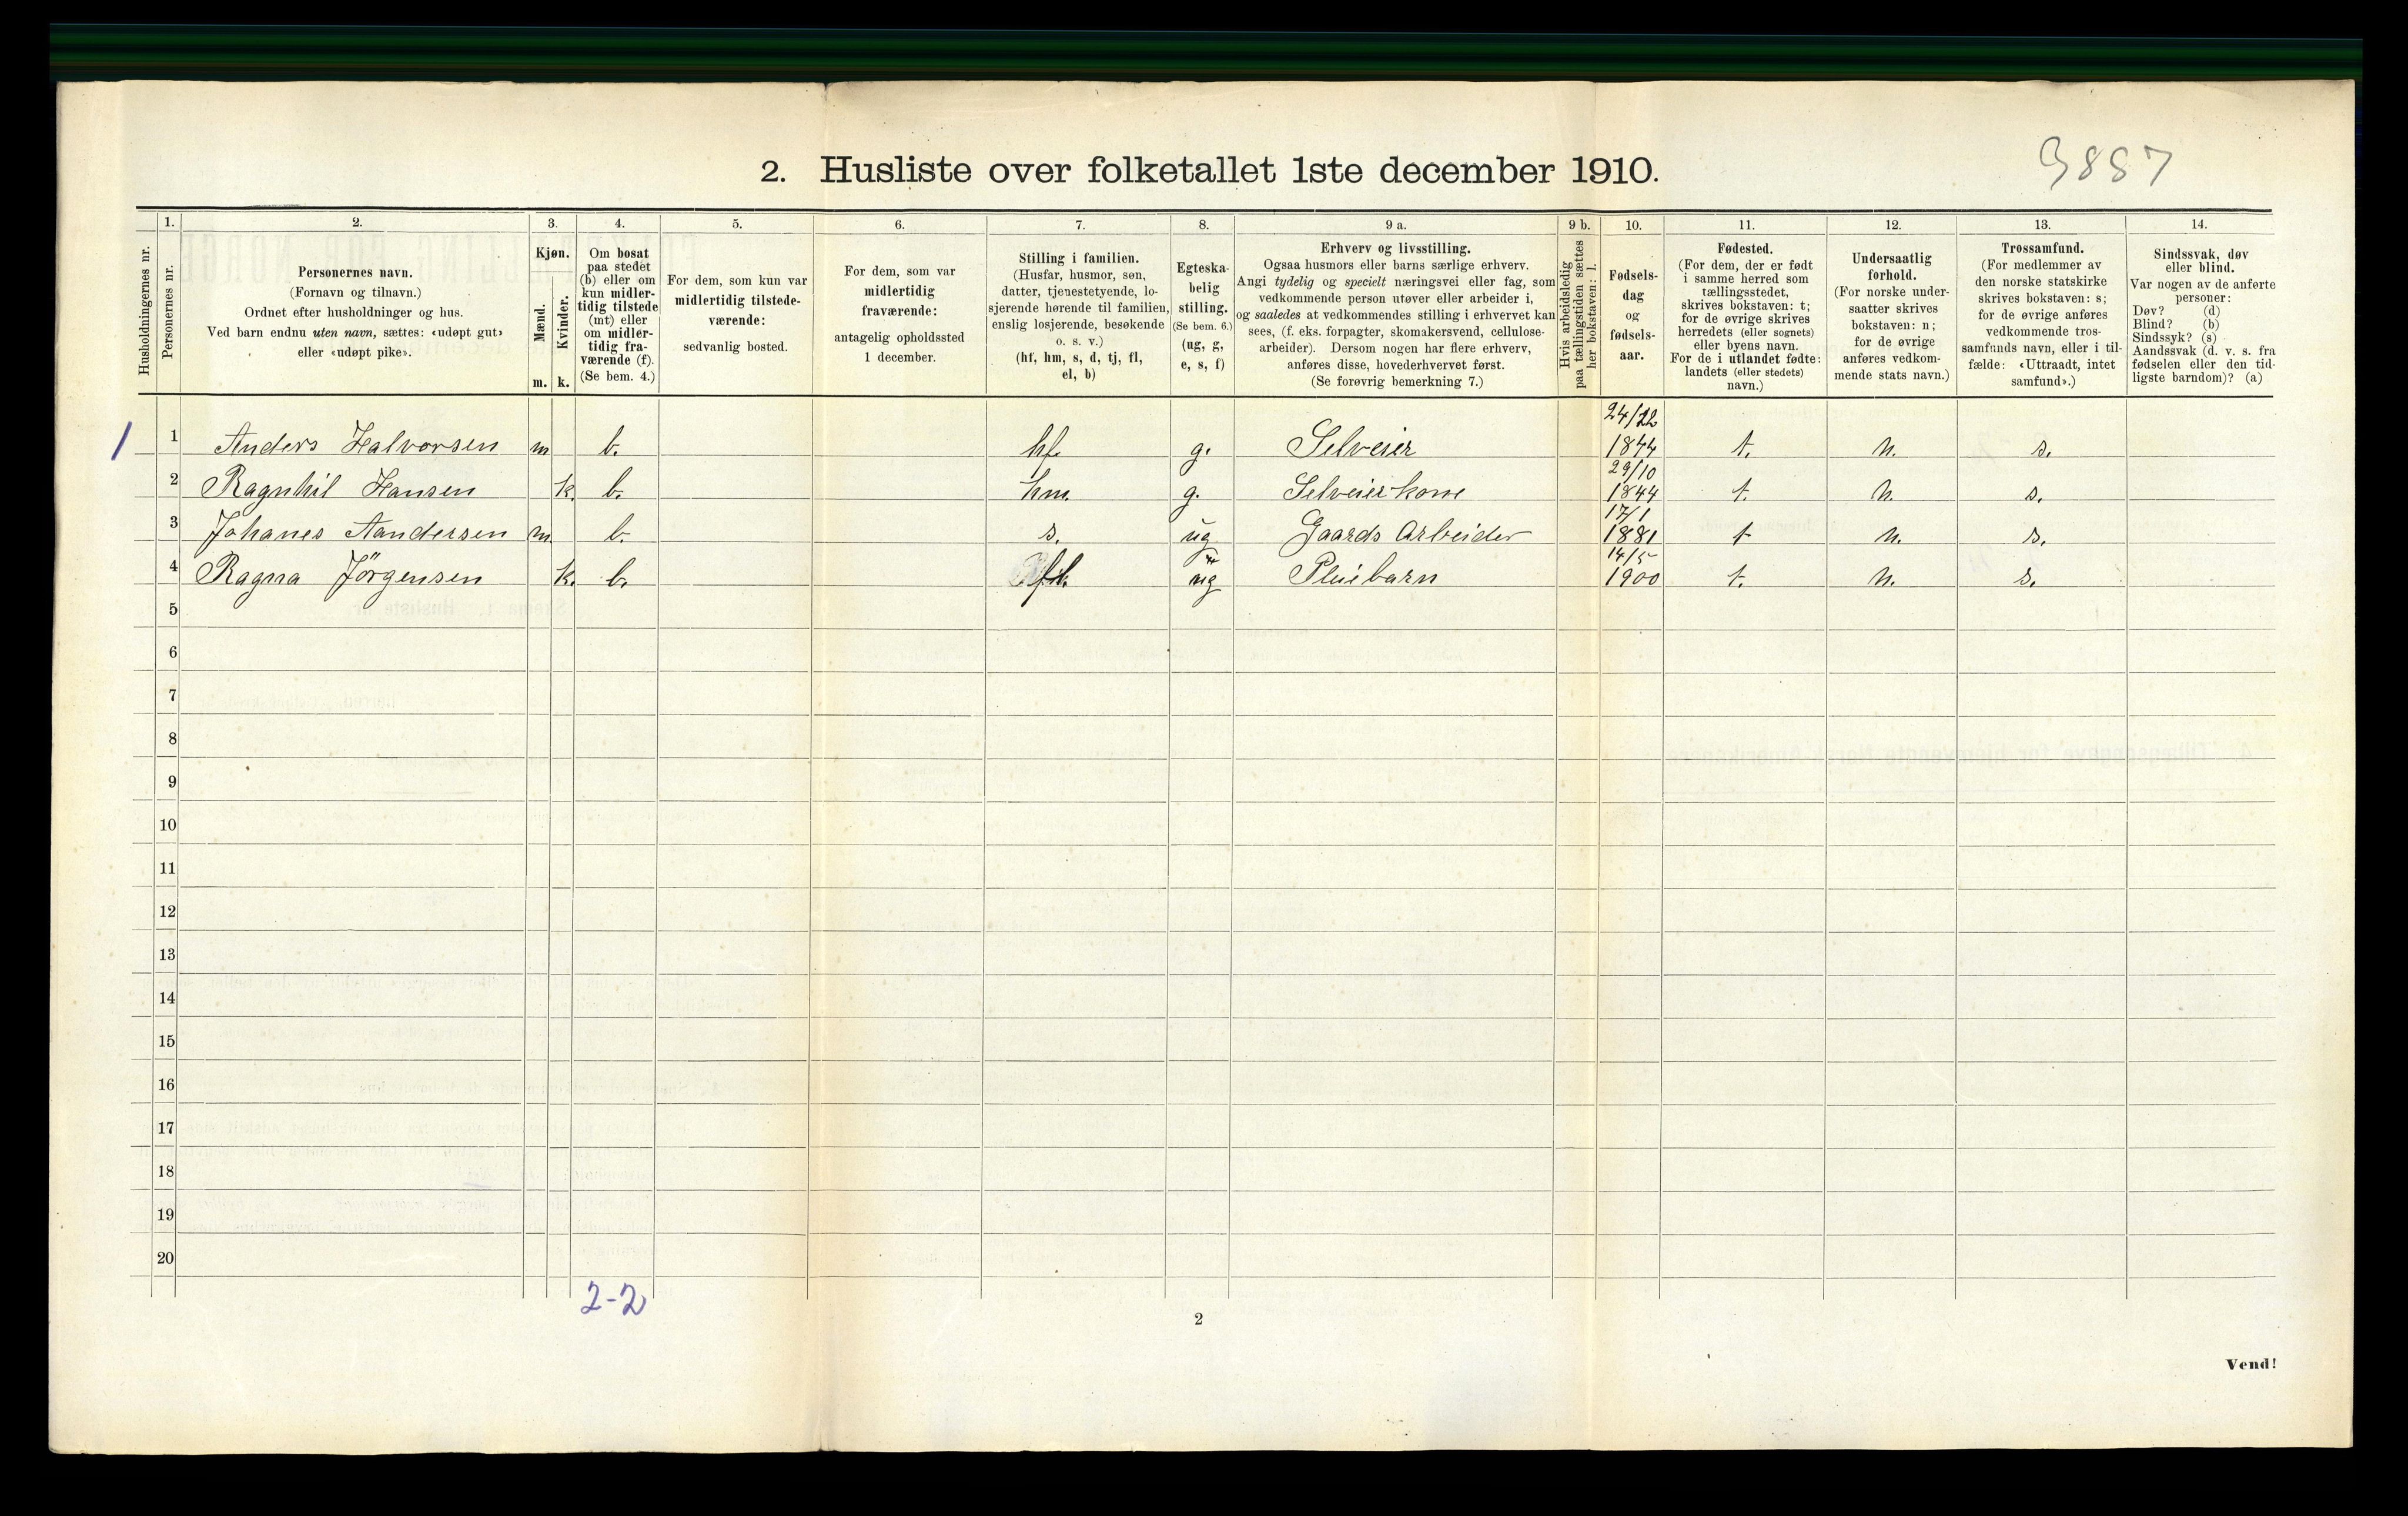 3887
2. Husliste over folketallet 1ste december 1910.
Husholdningernes nr.
1.
Personernes nr.
2.
Personernes navn.
(Fornavn og tilnavn.)
Ordnet efter husholdninger og hus.
Ved barn endnu uten navn, sættes: «udøpt gut»
eller «udøpt pike».
3.
Kjøn.
Mænd.
Kvinder.
m. k.
4.
Om bosat
paa stedet
(b) eller om
kun midler-
tidig tilstede
(mt) eller
om midler-
tidig fra-
værende (f).
(Se bem. 4.)
5.
For dem, som kun var
midlertidig tilstede-
værende:
sedvanlig bosted.
6.
For dem, som var
midlertidig
fraværende:
antagelig opholdssted
1 december.
7.
Stilling i familien.
(Husfar, husmor, søn,
datter, tjenestetyende, lo-
sjerende hørende til familien,
enslig losjerende, besøkende
o. s. v.)
(hf, hm, s, d, tj, fl,
el, b)
8.
Egteska-
belig
stilling.
(Se bem. 6.)
(ug, g,
e, s, f)
9 a.
Erhverv og livsstilling.
Ogsaa husmors eller barns særlige erhverv.
Angi tydelig og specielt næringsvei eller fag, som
vedkommende person utøver eller arbeider i,
og saaledes at vedkommendes stilling i erhvervet kan
sees, (f. eks. forpagter, skomakersvend, cellulose-
arbeider). Dersom nogen har flere erhverv,
anføres disse, hovederhvervet først.
(Se forøvrig bemerkning 7.)
9 b.
Hvis arbeidsledig
paa tællingstiden sættes
her bokstaven: l.
10.
Fødsels-
dag
og
fødsels-
aar.
11.
Fødested.
(For dem, der er født
i samme herred som
tællingsstedet,
skrives bokstaven: t;
for de øvrige skrives
herredets (eller sognets)
eller byens navn.
For de i utlandet fødte:
landets (eller stedets)
navn.)
12.
Undersaatlig
forhold.
(For norske under-
saatter skrives
bokstaven: n;
for de øvrige
anføres vedkom-
mende stats navn.)
13.
Trossamfund.
(For medlemmer av
den norske statskirke
skrives bokstaven: s;
for de øvrige anføres
vedkommende tros-
samfunds navn, eller i til-
fælde: «Uttraadt, intet
samfund».)
14.
Sindssvak, døv
eller blind.
Var nogen av de anførte
personer:
Døv? (d)
Blind? (b)
Sindssyk? (s)
Aandssvak (d. v. s. fra
fødselen eller den tid-
ligste barndom)? (a)
1 1 Anders Halvorsen m b. hf. g. Selveier 1844 t. n. s.
2 Ragnhil Hansen k. b. hm. g. Selveierkone 29/10 1844 t. n. s.
3 Johanes Aandersen m b. s. ug Gaards Arbeider 17/1 1881 t n. s.
4 Ragna Jörgensen k. b. ug Pleiebarn 14/5 1900 t. n. s.
5
6
7
8
9
10
11
12
13
14
15
16
17
18
19
20
2-2
2
Vend!